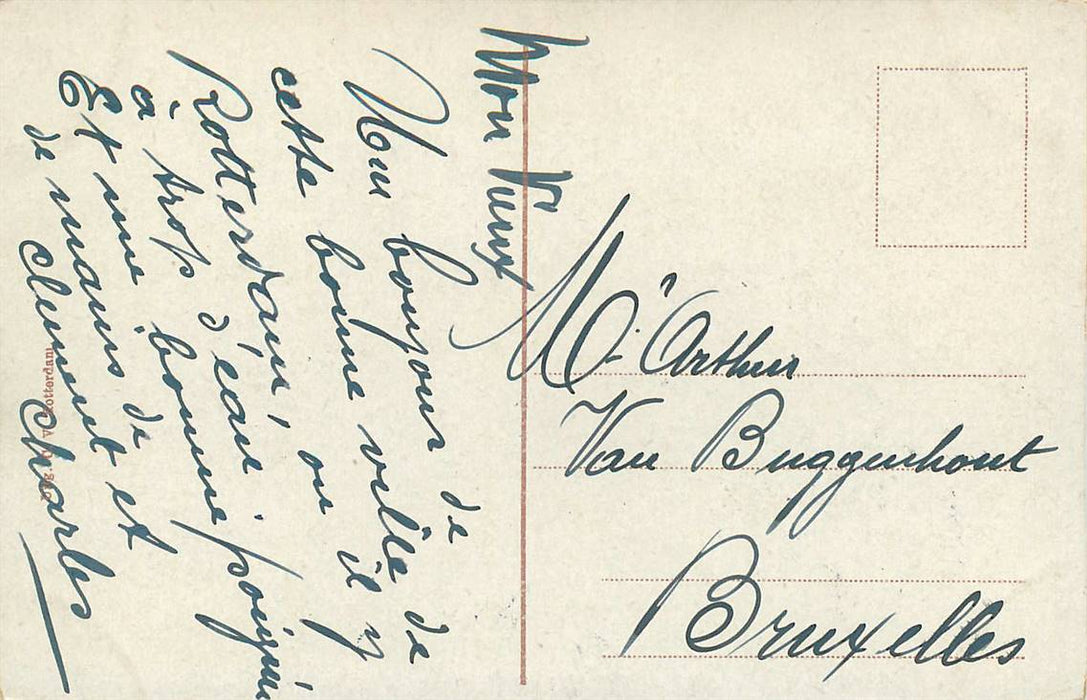 Mon Vieux
Un bonjour de
cette bonne ville de
Rotterdam, ou il y
à trop d'eau.
Et une bonne poignée
de mains de
clement et
Charles
Mr. Arthur
Van Buggenhout
Bruxelles
Rotterdam